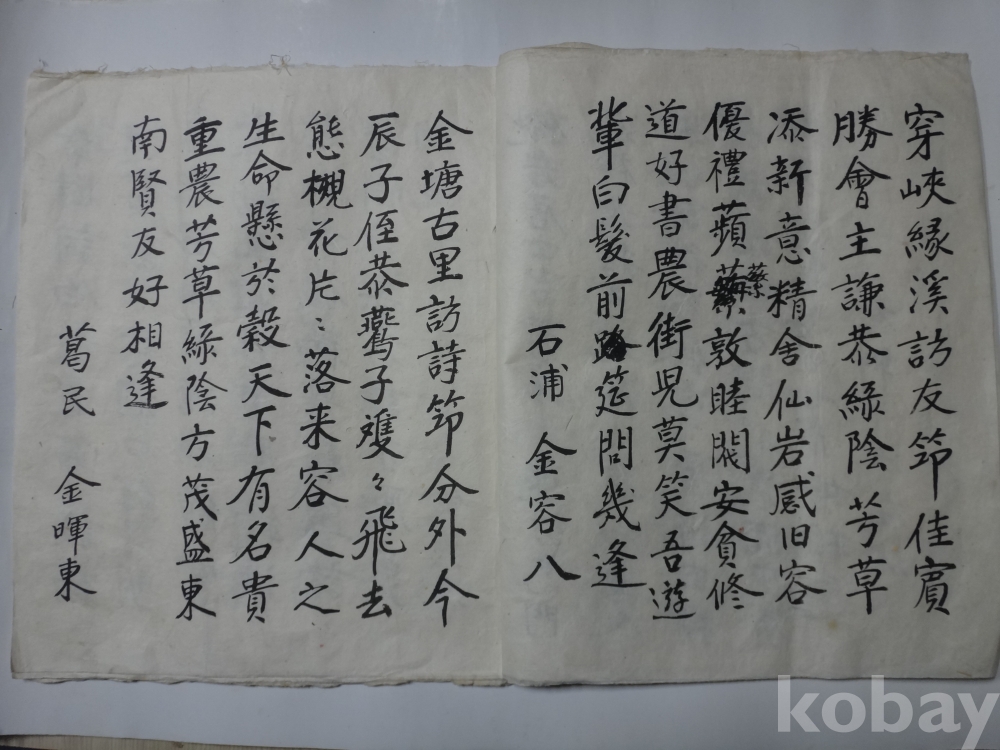 穿峽緣溪訪友筇佳賓
勝會主謙恭綠陰芳草
添新意精舍仙岩感旧容
優禮蘋蘩敦睦閥安貧修
道好書農街児莫笑吾遊
輩白髮前路筵問幾逢
石浦 金容八
金塘古里訪詩筇分外今
辰子侄恭鶯子雙々飛去
態櫬花片〻落来容人之
生命懸於穀天下有名貴
重農芳草綠陰方茂盛東
南賢友好相逢
葛民 金暉東
kobay